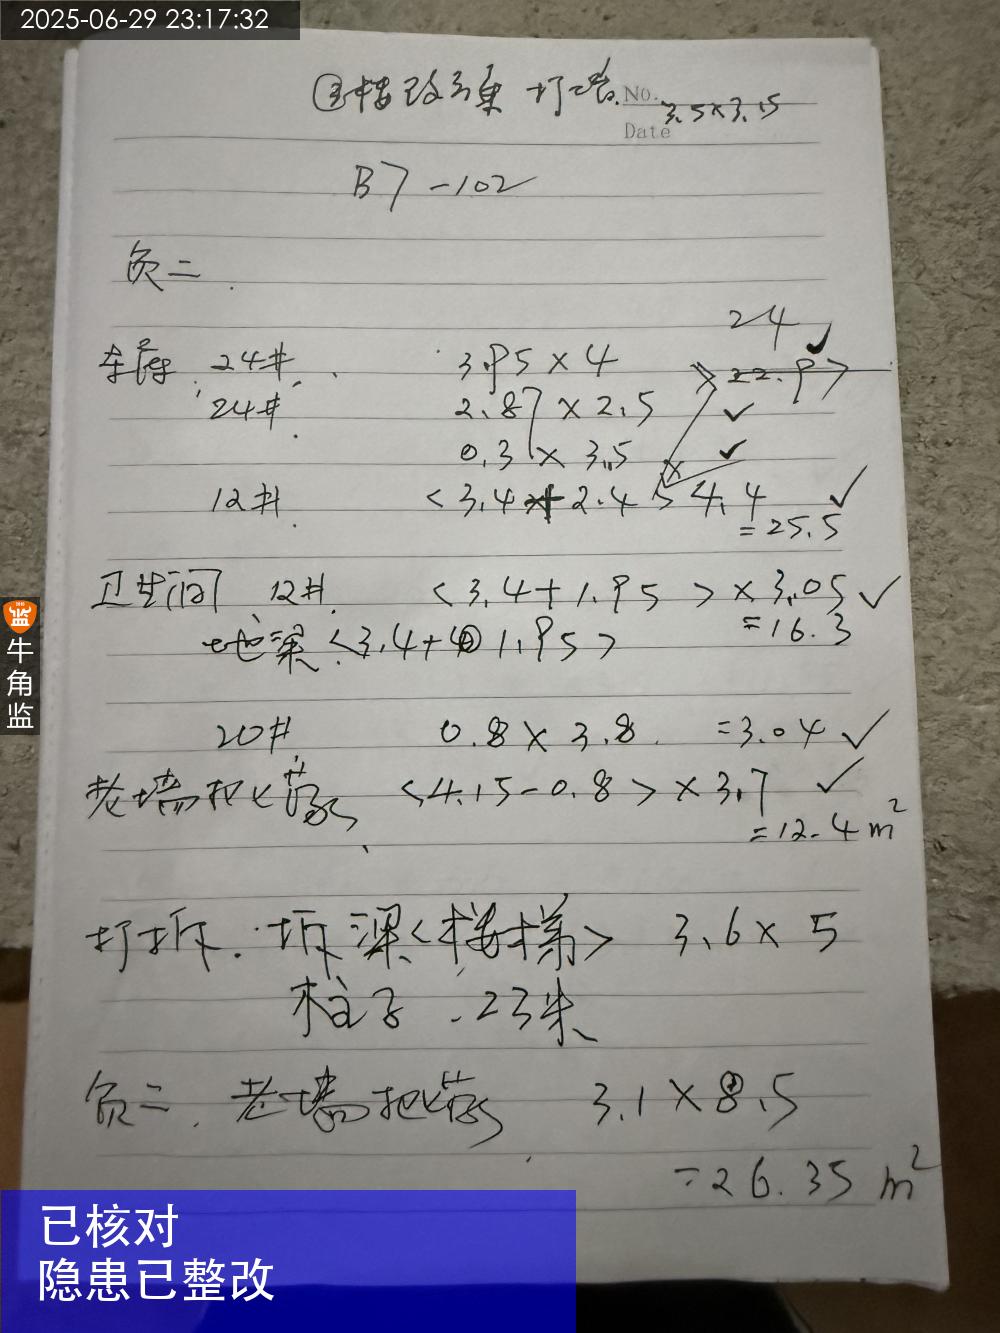 2025-06-29 23:17:32
打墙
No. 3.5×3.5
Date
B7-102
负二.
24
车库 24#. 3.95×4 22.9
24#. 2.87×2.5
0.3×3.5
12#. <3.4+2.4> × 4.4
=25.5
卫生间 12#. <3.4+1.95> ×3.05
=16.3
地梁<3.4+1.95>
20#. 0.8×3.8. =3.04
老墙 <4.15-0.8> ×3.7
=12.4m²
打拆. 拆梁<楼梯> 3.6×5
柱子.23米
负二. 老墙 3.1×8.5
=26.35m²
牛角监
已核对
隐患已整改